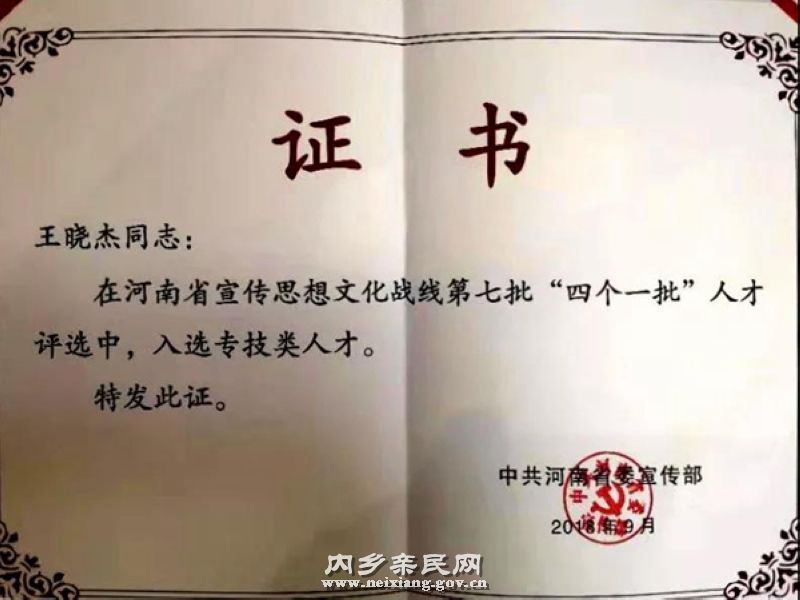 证书
王晓杰同志：
在河南省宣传思想文化战线第七批“四个一批”人才
评选中，入选专技类人才。
特发此证。
中共河南省委宣传部
2018年9月
内乡亲民网
www.neixiang.gov.cn